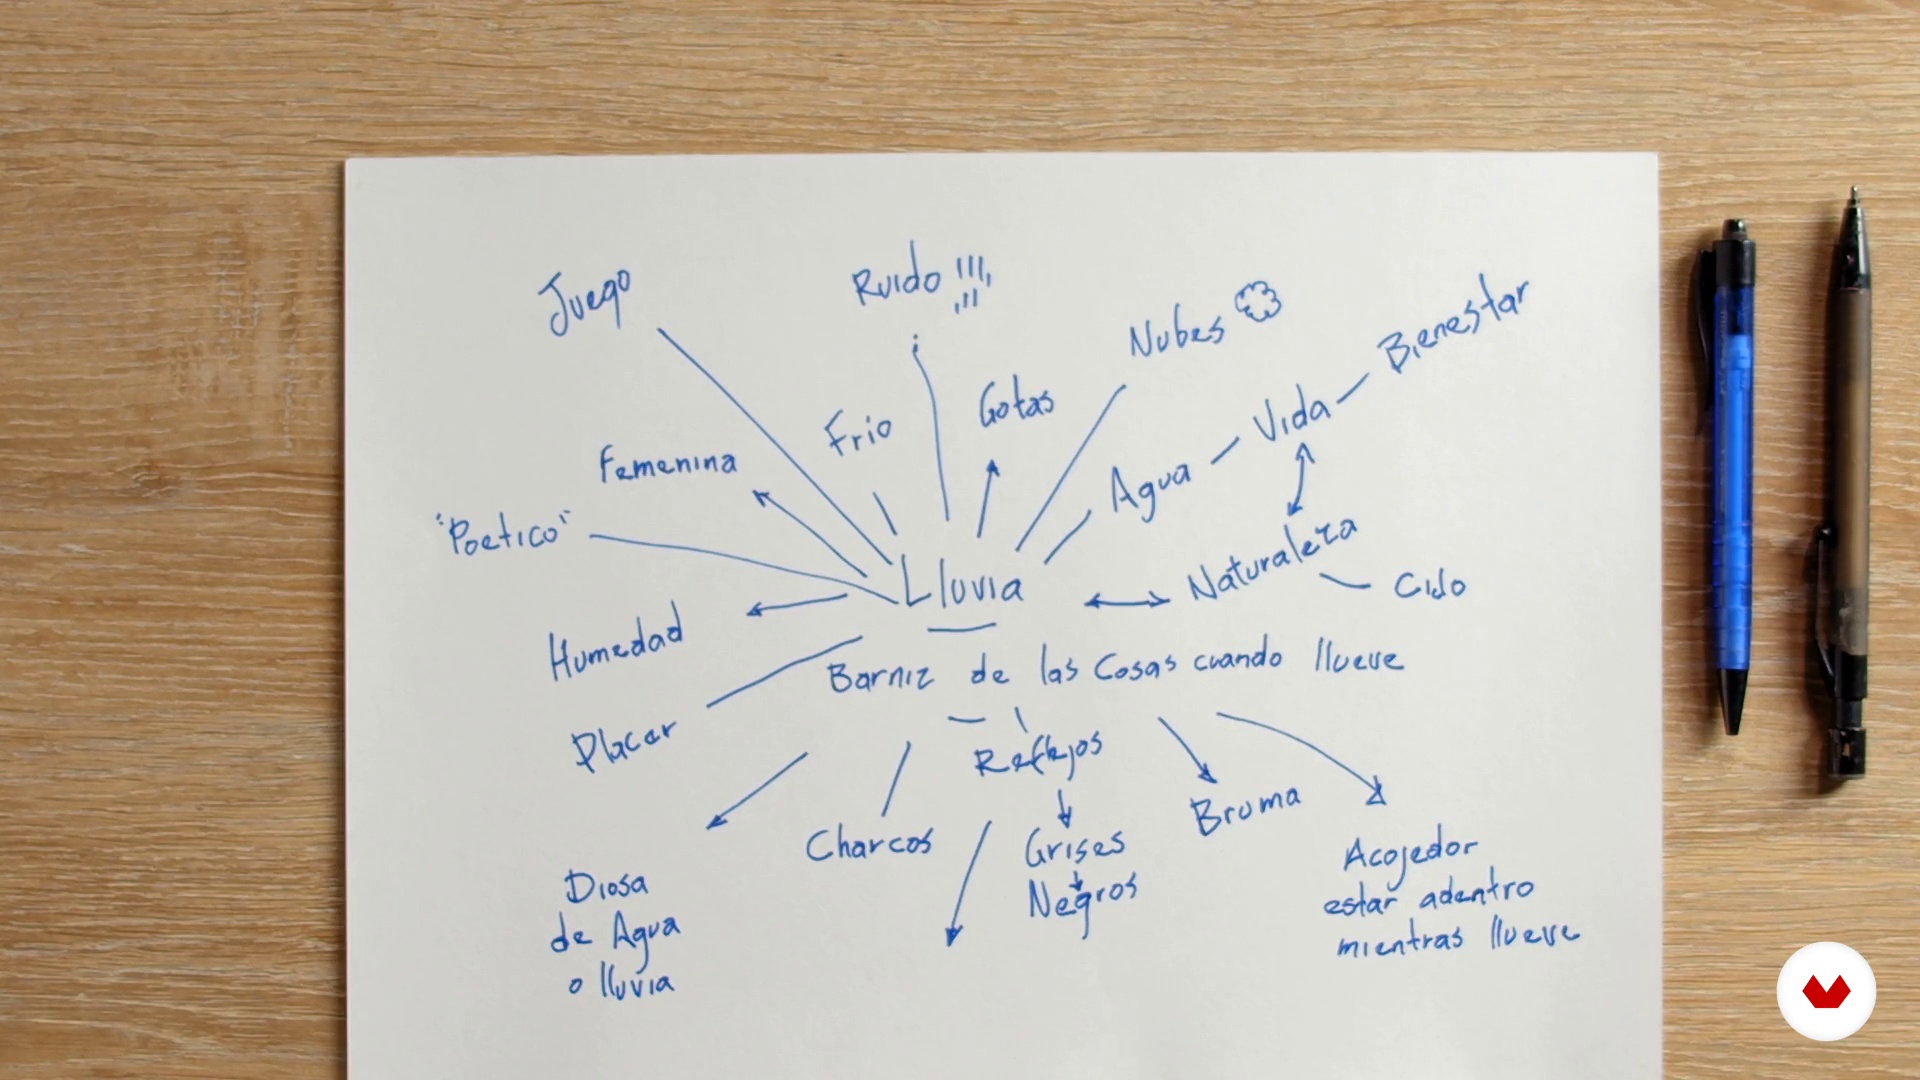 Juego
Ruido !!!, ,!!
Nubes
Bienestar
Vida
Gotas
Frio
Femenina
Agua
"Poetico"
Lluvia
Naturaleza
Ciclo
Humedad
Barniz de las Cosas cuando llueve
Placer
Reflejos
Bruma
Charcos
Grises
Negros
Acojedor
estar adentro
mientras llueve
Diosa
de Agua
o lluvia